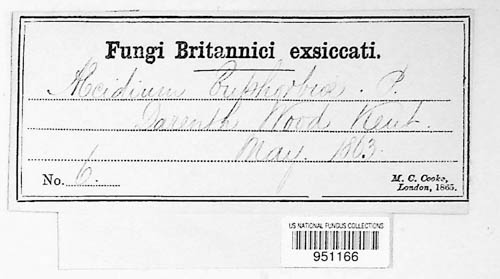 Fungi Britannici exsiccati.
Æcidium Euphorbiæ. P.
Darenth Wood Kent.
May. 1863.
No. 6.
M. C. Cooke,
London, 1865.
US NATIONAL FUNGUS COLLECTIONS
951166